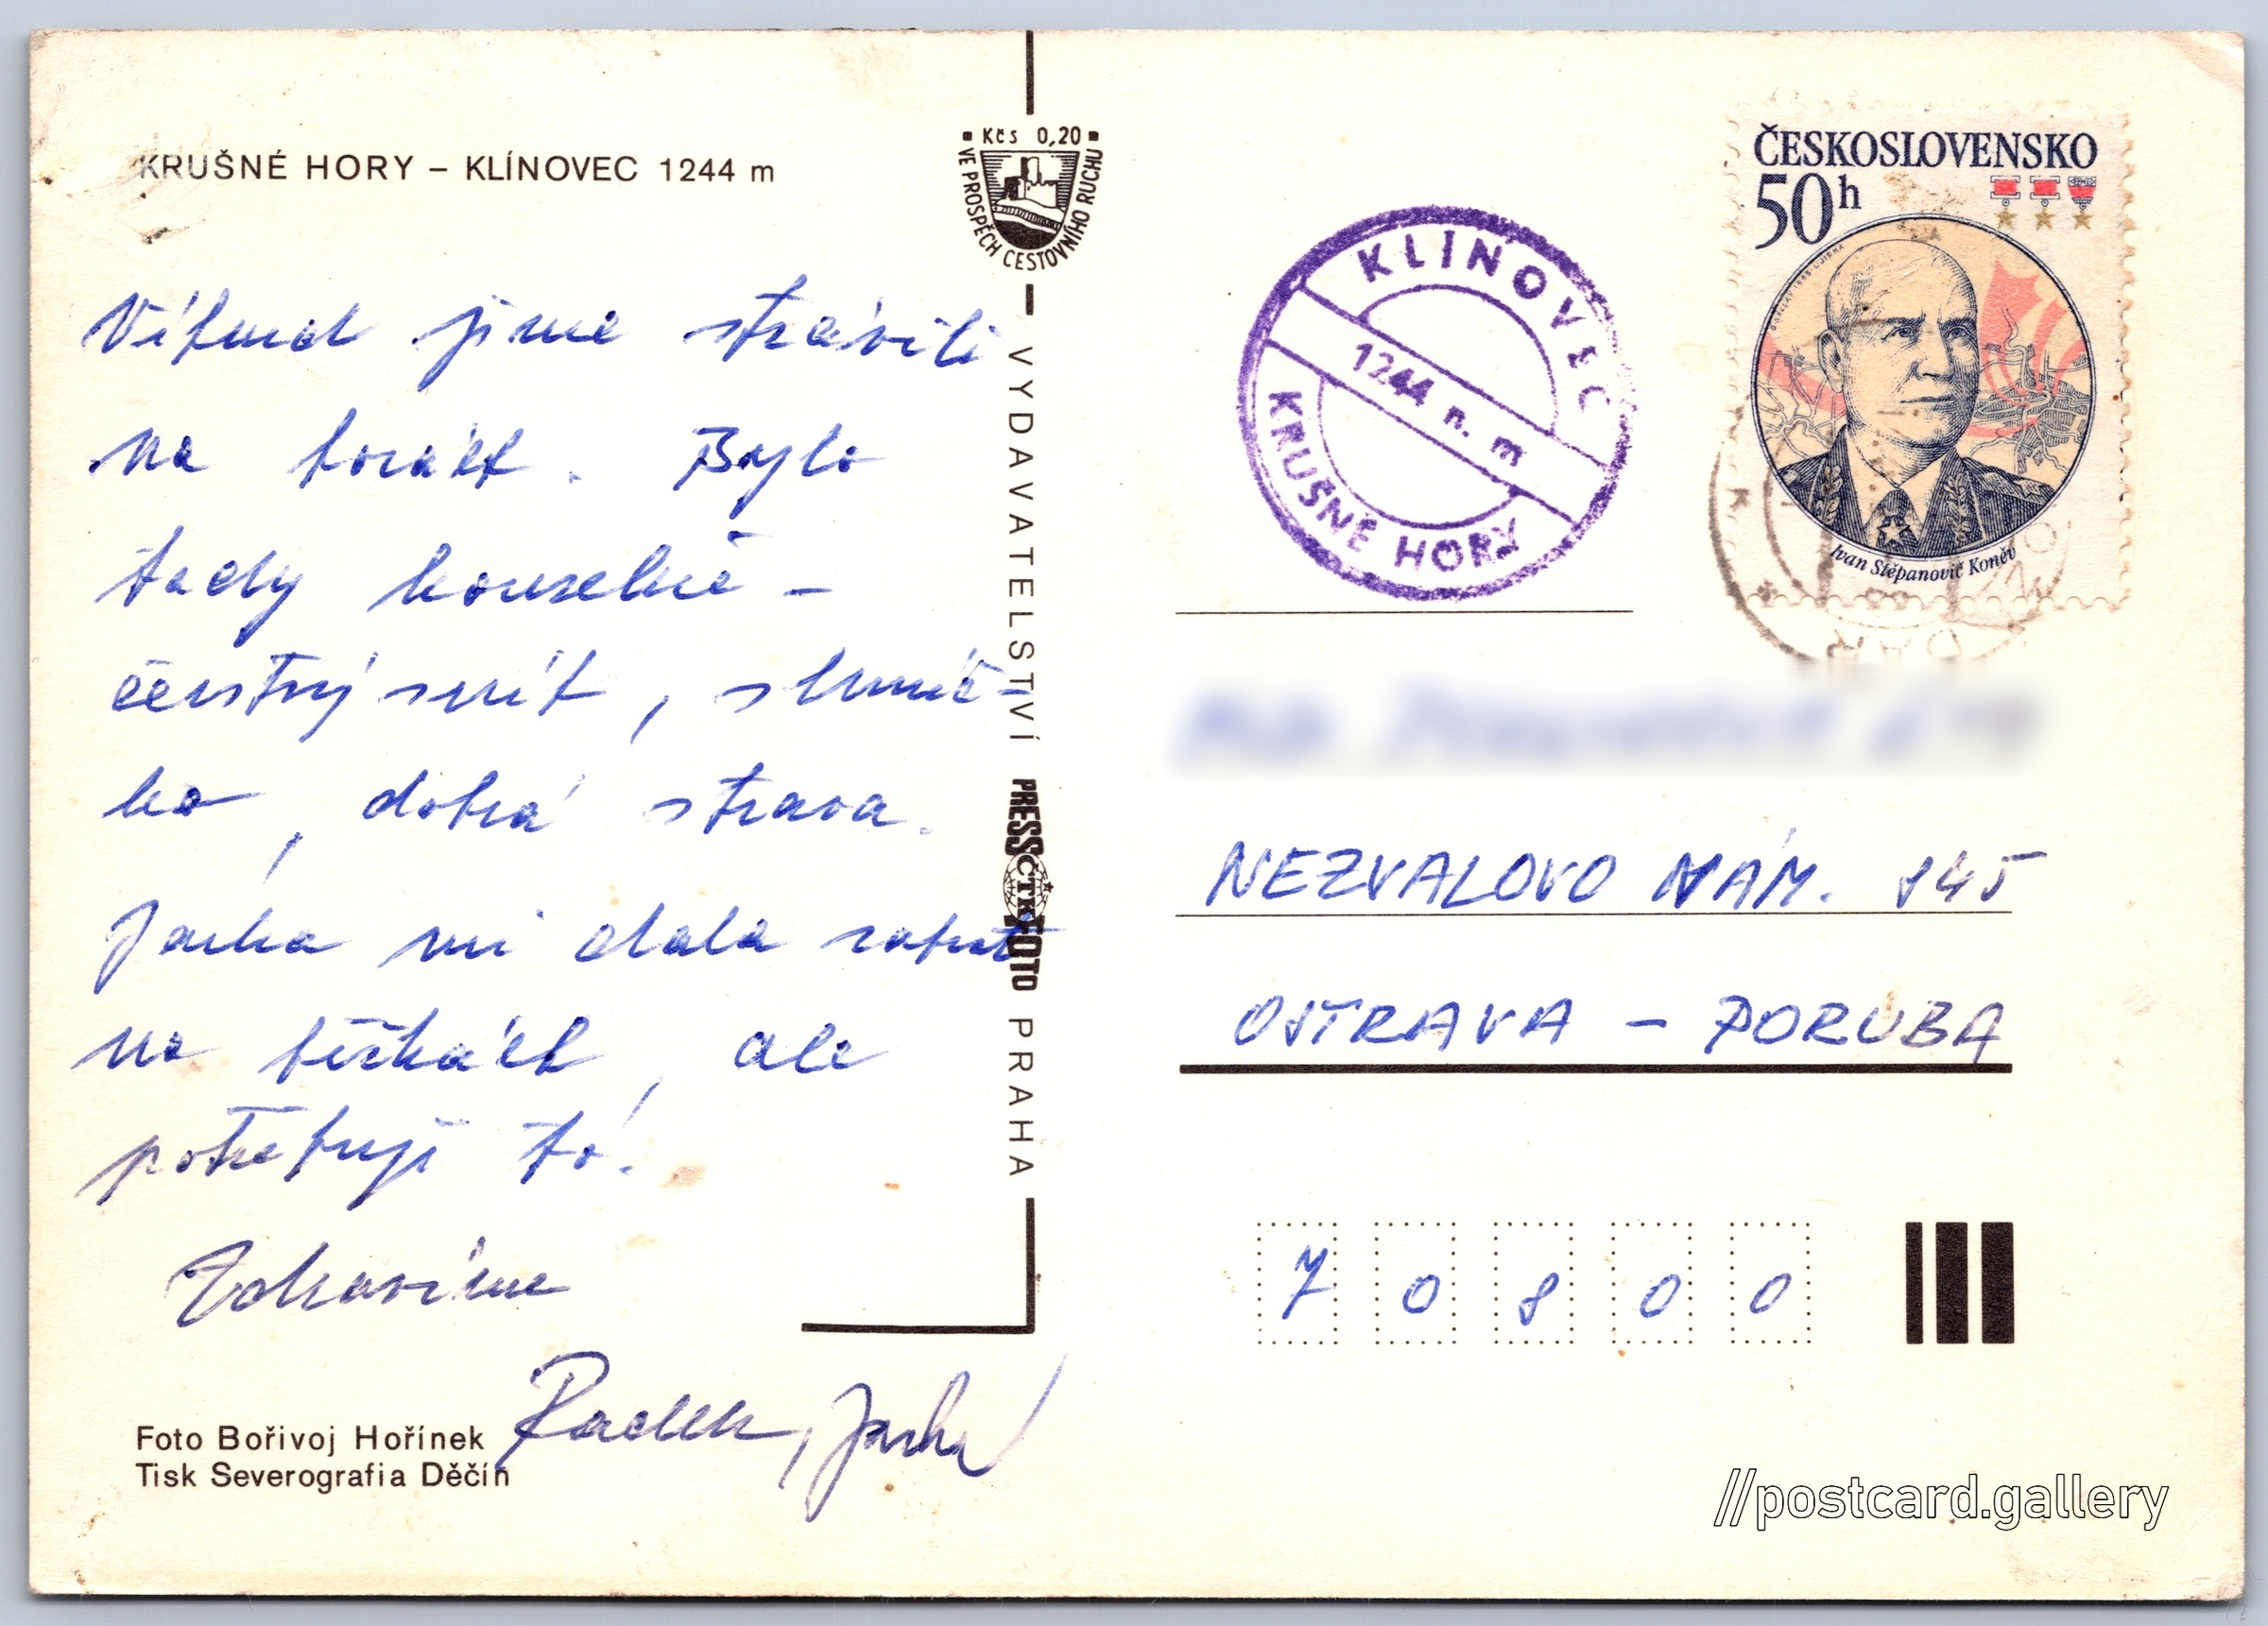 KRUŠNÉ HORY – KLÍNOVEC 1244 m
Víkend jsme strávili
na horách. Bylo
tady kouzelně –
čerstvý sníh, sluníč-
ko, dobrá strava.
Jarka mi dala zabrat
na běžkách, ale
potřebuji to!
Zdravíme
Radek, Jarka
Foto Bořivoj Hořínek
Tisk Severografia Děčín
Kčs 0,20
VE PROSPĚCH CESTOVNÍHO RUCHU
VYDAVATELSTVÍ PRESSFOTO PRAHA
ČTK
KLÍNOVEC
1244 n. m
KRUŠNÉ HORY
ČESKOSLOVENSKO
50h
Ivan Stěpanovič Koněv
NEZVALOVO NÁM. 845
OSTRAVA – PORUBA
70800
//postcard.gallery